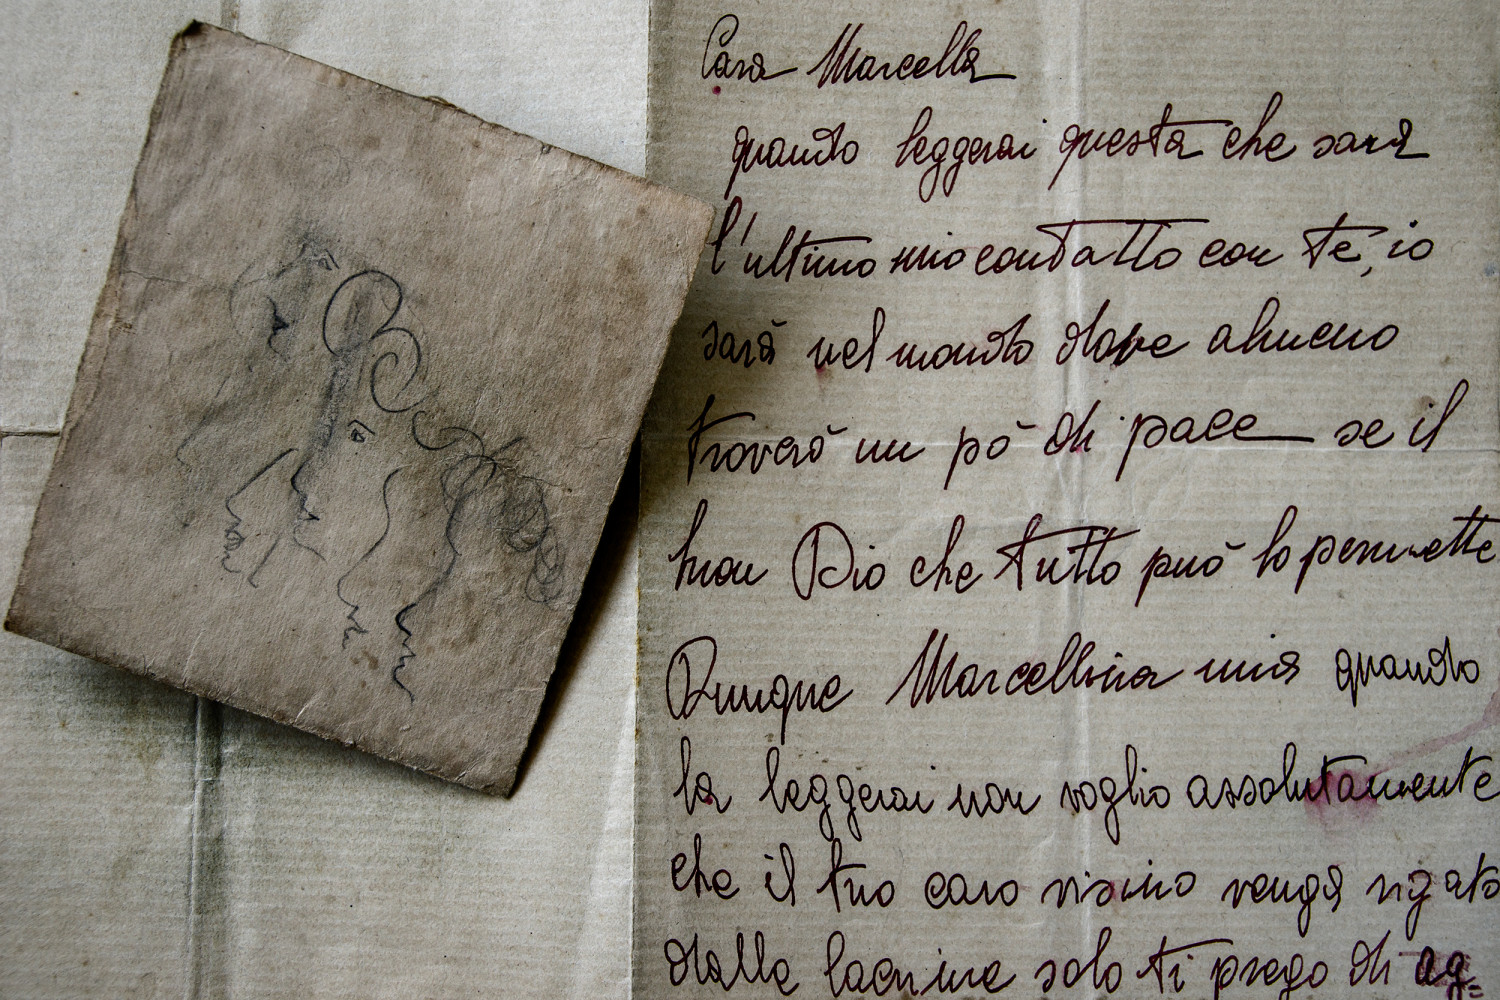 Cara Marcella
quando leggerai questa che sarà
l'ultimo mio contatto con te, io
sarò nel mondo dove almeno
troverò un pò di pace se il
buon Dio che tutto può lo permette
Dunque Marcellina mia quando
la leggerai non voglio assolutamente
che il tuo caro visino venga rigato
dalle lacrime solo ti prego di ag=